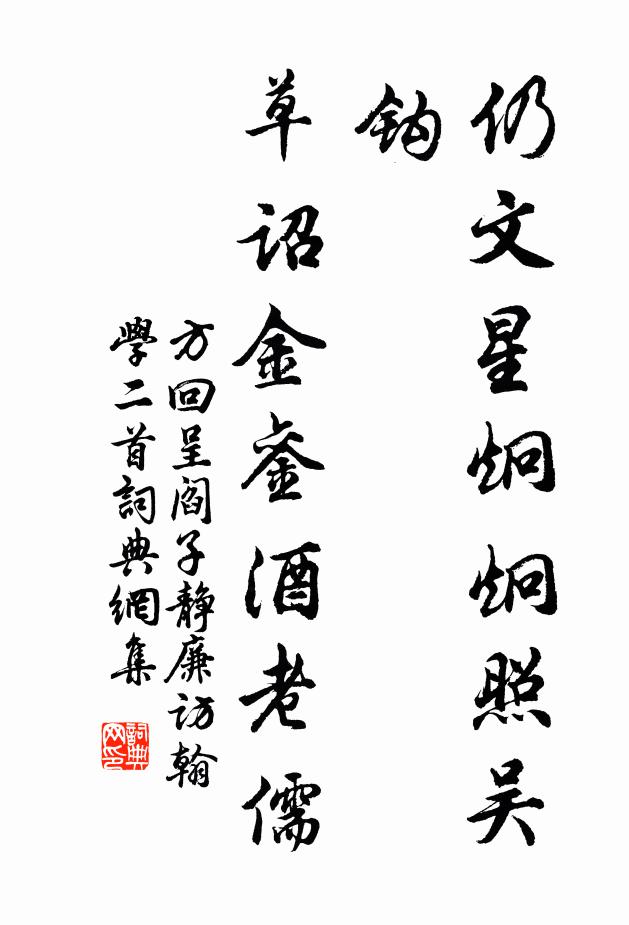 仍文星炯炯照吴
钩
草诏金銮酒老儒
方回呈阎子静廉访翰
學二首詞典網集
詞典网印